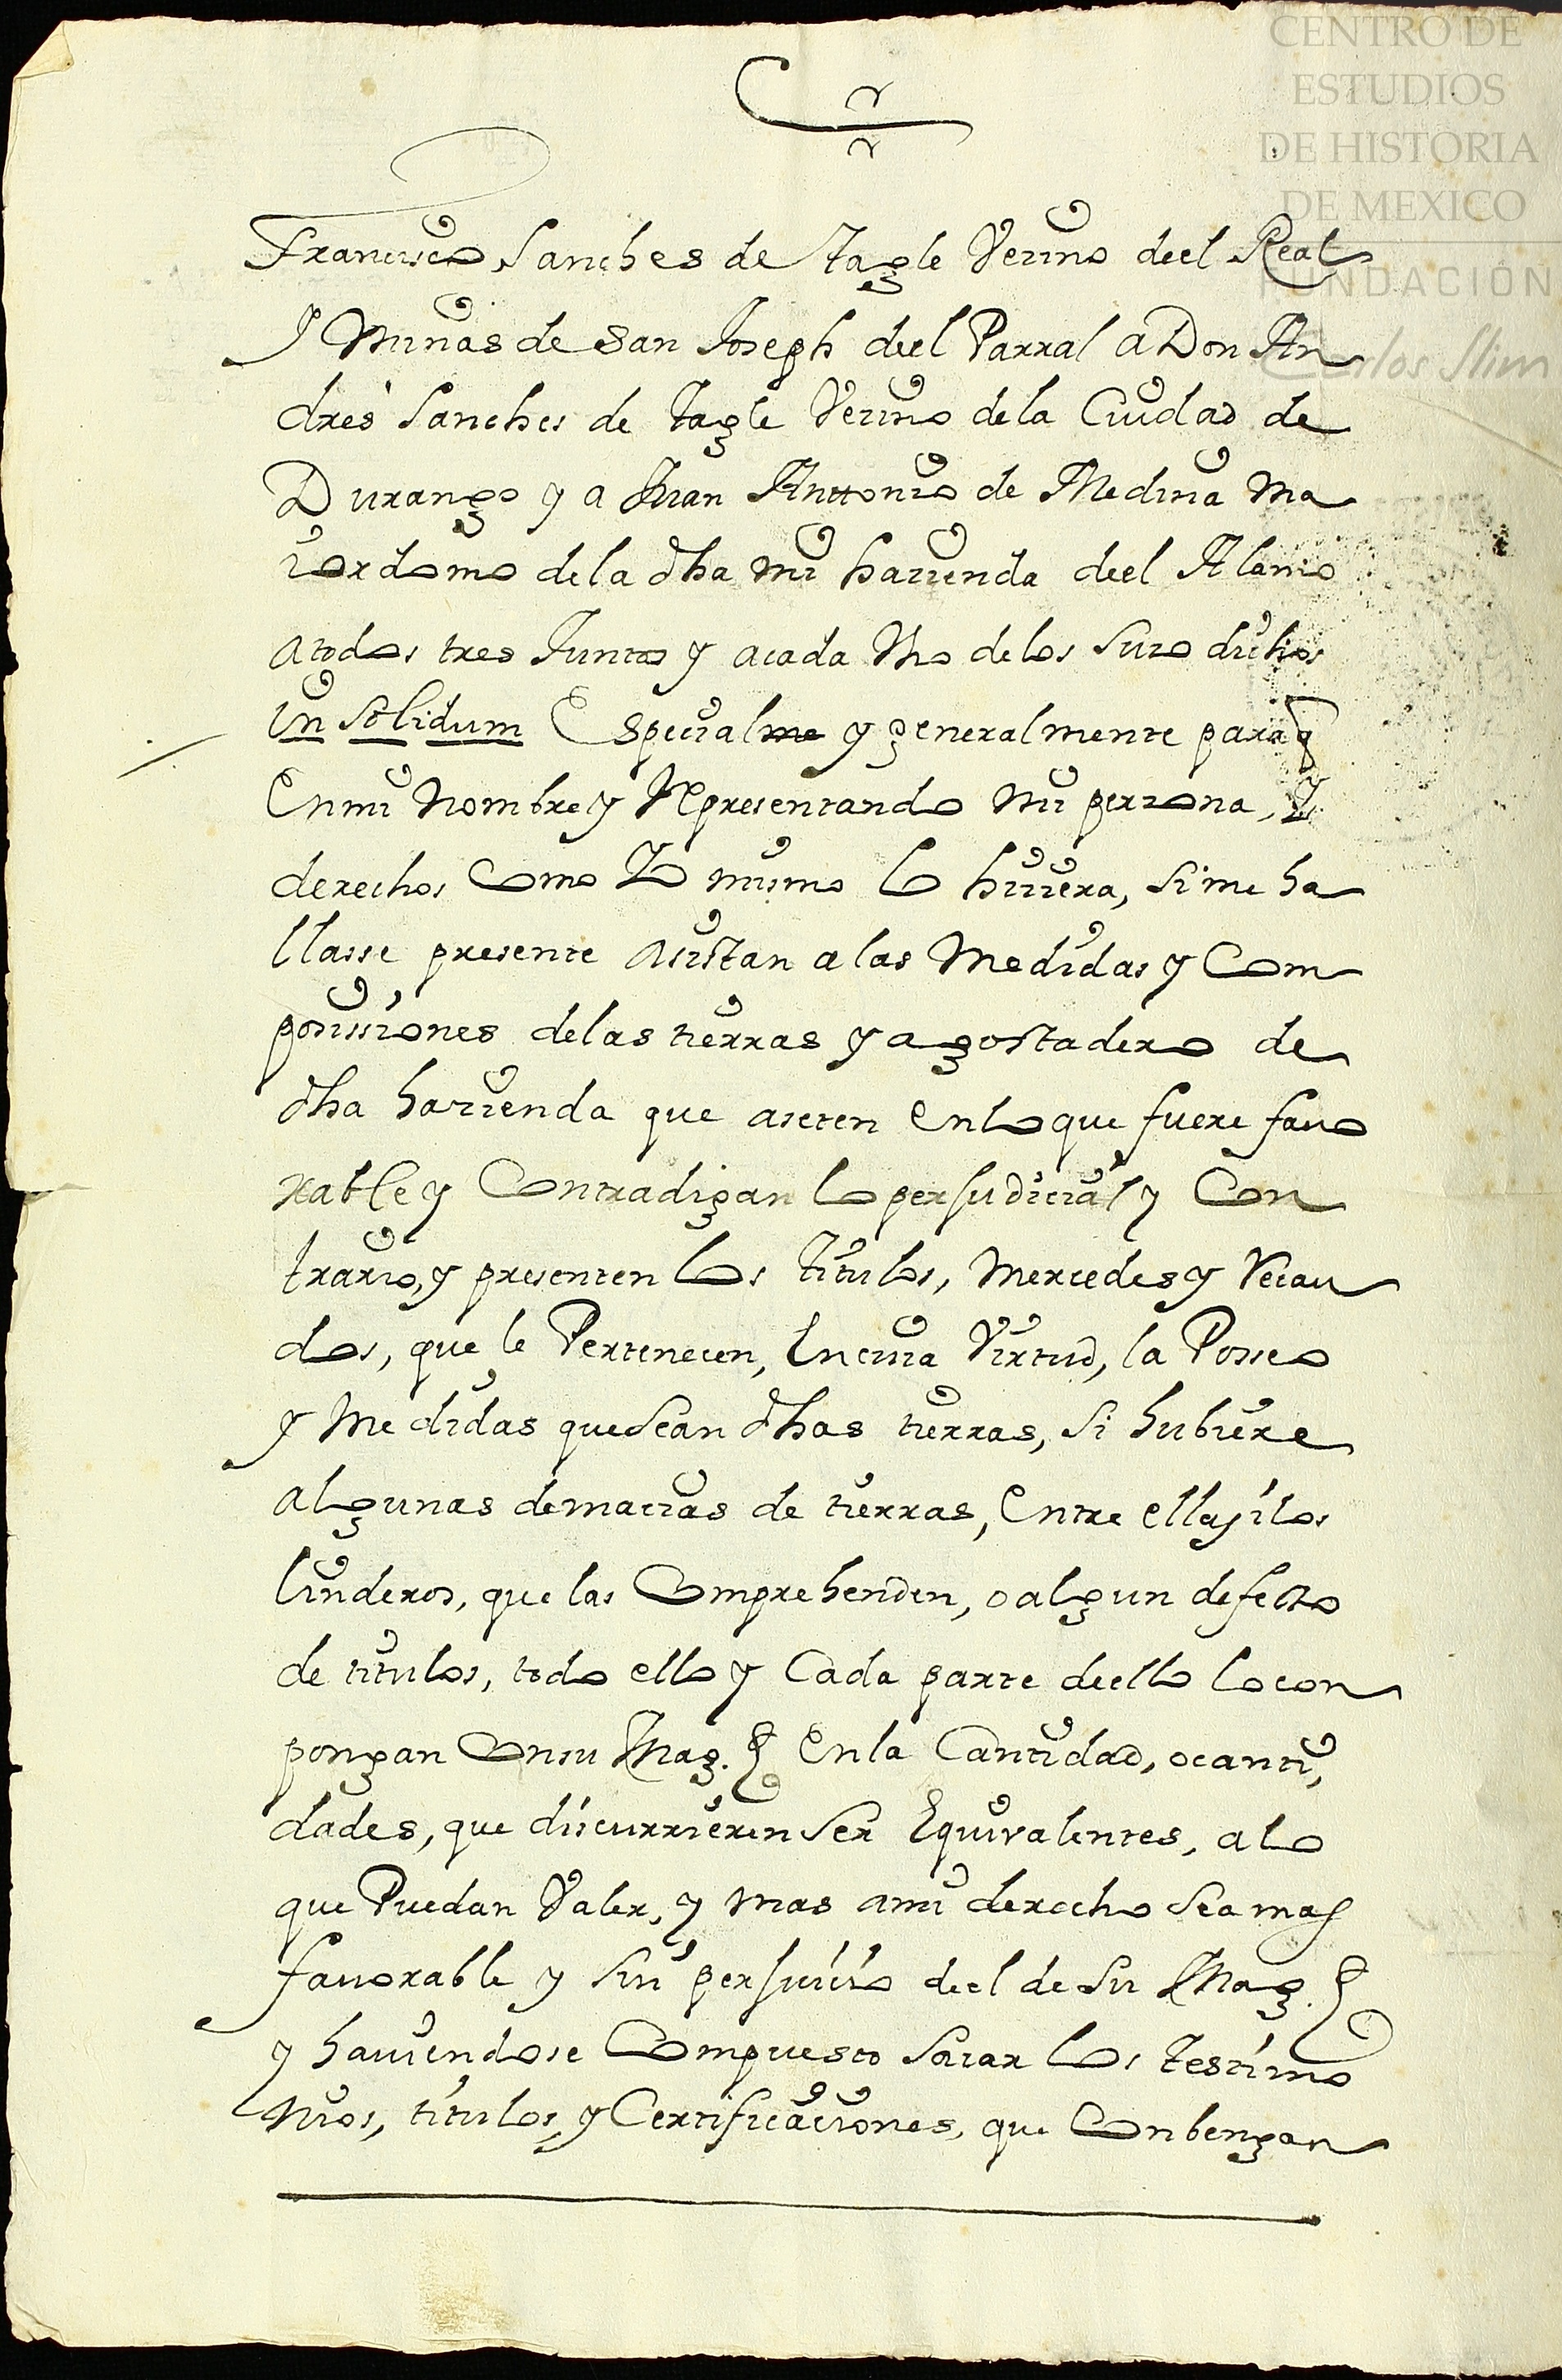 CENTRO DE
ESTUDIOS
DE HISTORIA
DE MEXICO
FUNDACIÓN
Carlos Slim
Francisco Sanches de Tagle Vecino deel Real
Y Minas de San Joseph deel Parral a Don An
dres Sanches de Tagle Vecino de la Ciudad de
Durango y a Juan Anttonio de Medina Ma
iordomo de la dha mi hazienda deel Alamo
atodos tres Juntos y acada Uno delos Suso dichos
in Solidum Especialme y generalmente para q
En mi Nombre y Representando mi perzona, Y
derechos Como Yo mismo lo hiziera, Si me ha
llasse presente asistan a las Medidas y Com
posissiones de las tierras y agostadero de
dha hazienda que aseten En lo que fuere favo
rable y Contradigan lo perjudicial y Con
trario, y presenten los Titulos, Mercedes y Recau
dos, que le Pertenecen, En cuia Virtud, la Posseo
y Medidas que Sean dhas tierras, Si hubiere
algunas demacias de tierras, Entre ellas, i los
linderos, que las Comprehenden, o algun defecto
de titulos, todo ello y Cada parte deello lo con
pongan Con su Mag.d En la Cantidad, o canti,
dades, que discurrieren Ser Equivalentes, a lo
que Puedan Valer, y mas a mi derecho Sea mas
favorable y Sin perjuicio deel de Su Mag.d
y haviendose Compuesto Sacar los testimo
nios, titulos, y Certificaciones, que Conbengan